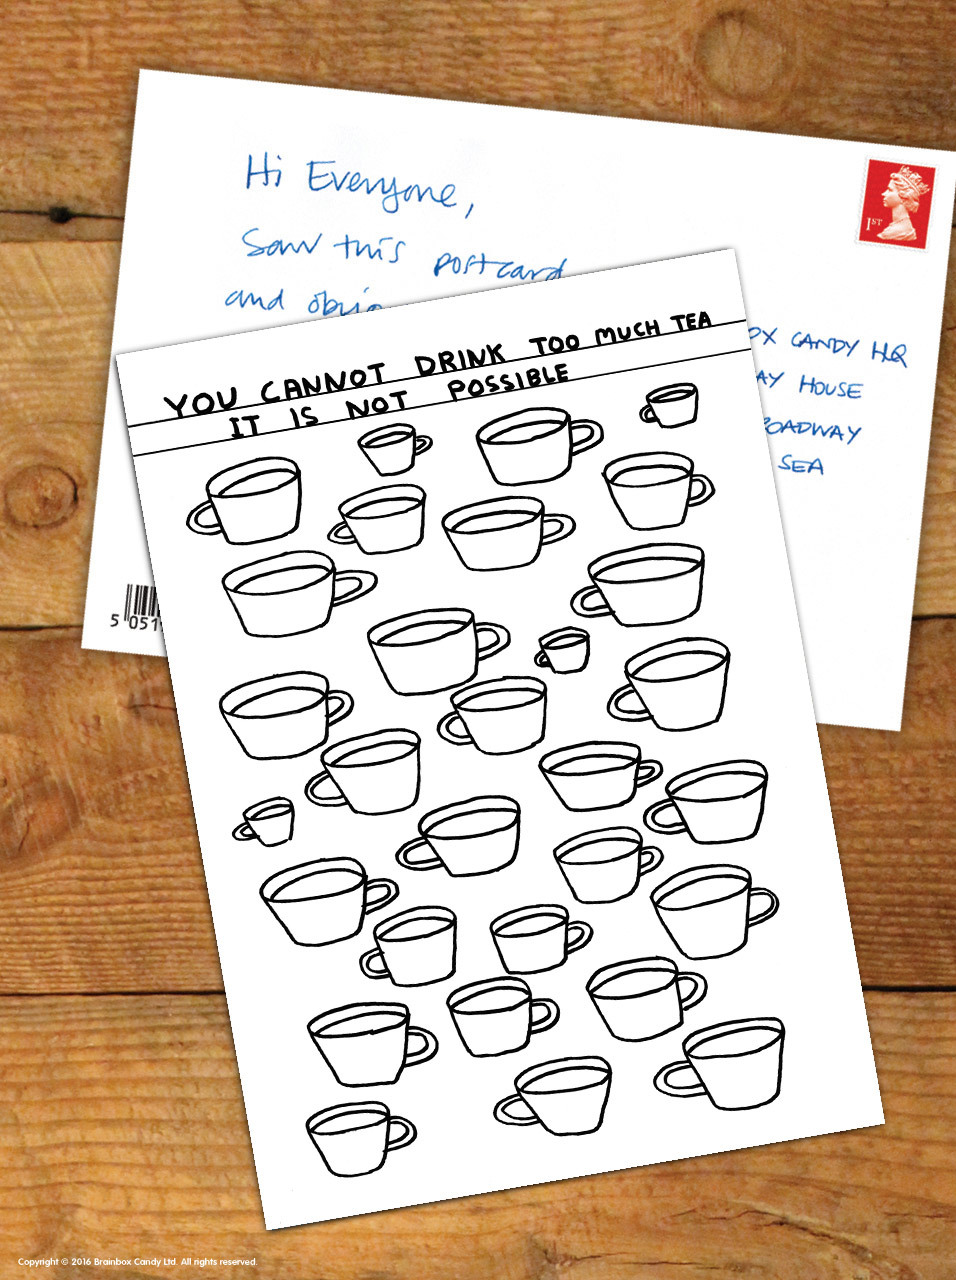 Hi Everyone,
Saw this postcard
and obvio
1ST
OX CANDY HQ
AY HOUSE
ROADWAY
SEA
5 051
YOU CANNOT DRINK TOO MUCH TEA
IT IS NOT POSSIBLE
Copyright © 2016 Brainbox Candy Ltd. All rights reserved.